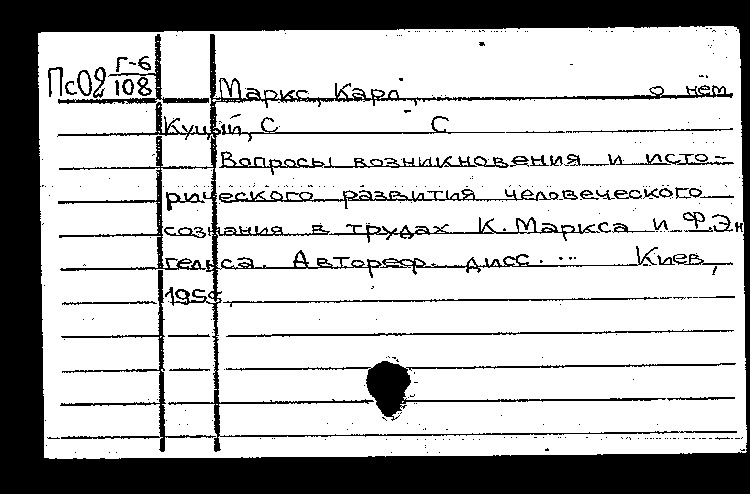 ПсО2 Г-6
108
Маркс, Карл, о нем
Куцый, С С
Вопросы возникновения и исто-
рического развития человеческого
сознания в трудах К. Маркса и Ф.Эн
гельса. Автореф. дисс. ... Киев,
1955.